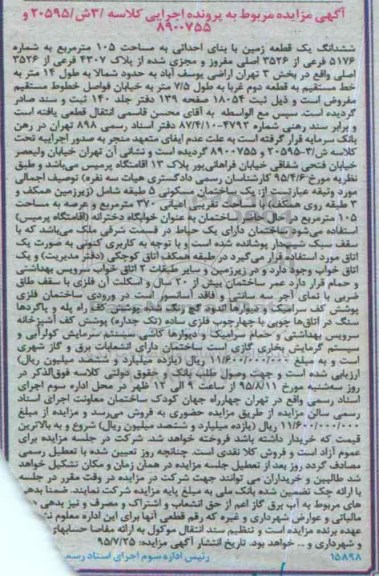 آگهی مزایده مربوط به پرونده اجرایی کلاسه ۳/ش/۲۰۵۹۵ و
۸۹۰۰۷۵۵
ششدانگ یک قطعه زمین با بنای احداثی به مساحت ۱۰۵ مترمربع به شماره
۵۱۷۶ فرعی از ۳۵۲۶ اصلی مفروز و مجزی شده از پلاک ۴۳۰۷ فرعی از ۳۵۲۶
اصلی واقع در بخش ۳ تهران اراضی یوسف آباد به حدود شمالا به طول ۱۴ متر به
خط مستقیم به قطعه دوم غربا به طول ۷/۵ متر به خیابان فواصل خطوط مستقیم
مفروض است و ذیل ثبت ۱۸۰۵۴ صفحه ۱۳۹ دفتر جلد ۱۴۰ ثبت و سند صادر
گردیده است. سپس مع الواسطه به آقای محسن قاسمی انتقال قطعی یافته است
و برابر سند رهنی شماره ۴۷۹۲-۸۷/۴/۱۰ دفتر اسناد رسمی ۸۹۸ تهران در رهن
بانک سرمایه قرار گرفته است به علت عدم ایفای متعهد منجر به صدور اجراییه تحت
کلاسه ش/۳-۲۰۵۹۵ و ۸۹۰۰۷۵۵ گردیده است و نشانی آن تهران خیابان ولیعصر
خیابان فتحی شقاقی خیابان فراهانی‌پور پلاک ۱۳ اقامتگاه پرمیس می‌باشد و طبق
نظریه مورخ ۹۵/۴/۶ کارشناسان رسمی دادگستری هیات سه نفره توصیف اجمالی
مورد وثیقه عبارتست از: یک ساختمان مسکونی ۵ طبقه شامل (زیرزمین همکف و
۳ طبقه روی همکف) به مساحت تقریبی اعیانی ۳۷۰ مترمربع و عرصه به مساحت
۱۰۵ مترمربع در حال حاضر ساختمان به عنوان خوابگاه دخترانه (اقامتگاه پرمیس)
استفاده می‌شود ساختمان دارای یک حیاط در قسمت شرقی ملک می‌باشد که با
سقف سبک شیبدار پوشانده شده است و با توجه به کاربری کنونی به صورت یک
اتاق مورد استفاده قرار می گیرد در طبقه همکف اتاق کوچکی (دفتر مدیریت) و یک
اتاق خواب وجود دارد و در زیرزمین و سایر طبقات ۲ اتاق خواب سرویس بهداشتی
و حمام قرار دارد عمر ساختمان بیش از ۲۰ سال و اسکلت آن فلزی با سقف طاق
ضربی با نمای آجر سه سانتی و فاقد آسانسور است در ورودی ساختمان فلزی
پوشش کف سرامیک و دیوارها اندود گچ رنگ شده پوشش کف راه پله و پاگردها
سنگ در اتاق‌ها چوبی با چهارچوب فلزی ساده (تک جداره) پوشش کف آشپزخانه
سرویس بهداشتی و حمام سرامیک و دیوارها کاشی سیستم سرمایش کولرآبی و
سیستم گرمایش بخاری گازی است ساختمان دارای انشعابات برق و گاز شهری
است و به مبلغ ۱۱/۶۰۰/۰۰۰/۰۰۰ ریال (یازده میلیارد و ششصد میلیون ریال)
ارزیابی شده است و جهت وصول طلب بانک و حقوق دولتی کلاسه فوق‌الذکر در
روز سه‌شنبه مورخ ۹۵/۸/۱۱ از ساعت ۹ الی ۱۲ ظهر در محل اداره سوم اجرای
اسناد رسمی واقع در تهران چهارراه جهان کودک ساختمان معاونت اجرای اسناد
رسمی سالن مزایده از طریق مزایده حضوری به فروش می‌رسد و مزایده از مبلغ
۱۱/۶۰۰/۰۰۰/۰۰۰ ریال (یازده میلیارد و ششصد میلیون ریال) شروع و به بالاترین
قیمت که خریدار داشته باشد فروخته خواهد شد. شرکت در جلسه مزایده برای
عموم آزاد است و فروش کلا نقدی است. چنانچه روز تعیین شده با تعطیل رسمی
مصادف گردد روز بعد از تعطیل جلسه مزایده در همان زمان و مکان تشکیل خواهد
شد طالبین و خریداران می توانند جهت شرکت در مزایده در وقت مقرر در جلسه
با ارائه چک تضمین شده بانک ملی به مبلغ پایه مزایده شرکت نمایند. ضمنا بدهی
های مربوط به آب برق گاز اعم از حق انشعاب و اشتراک و مصرف و نیز بدهی
مالیاتی و عوارض شهرداری و غیره که رقم قطعی آنها برای این اداره معلوم
عهده برنده مزایده است و تنظیم سند انتقال موکول به ارائه مفاصا حسابهای
و شهرداری و ... خواهد بود. تاریخ انتشار آگهی مزایده: ۹۵/۷/۲۵
۱۵۸۹۸ رئیس اداره سوم اجرای اسناد رسم